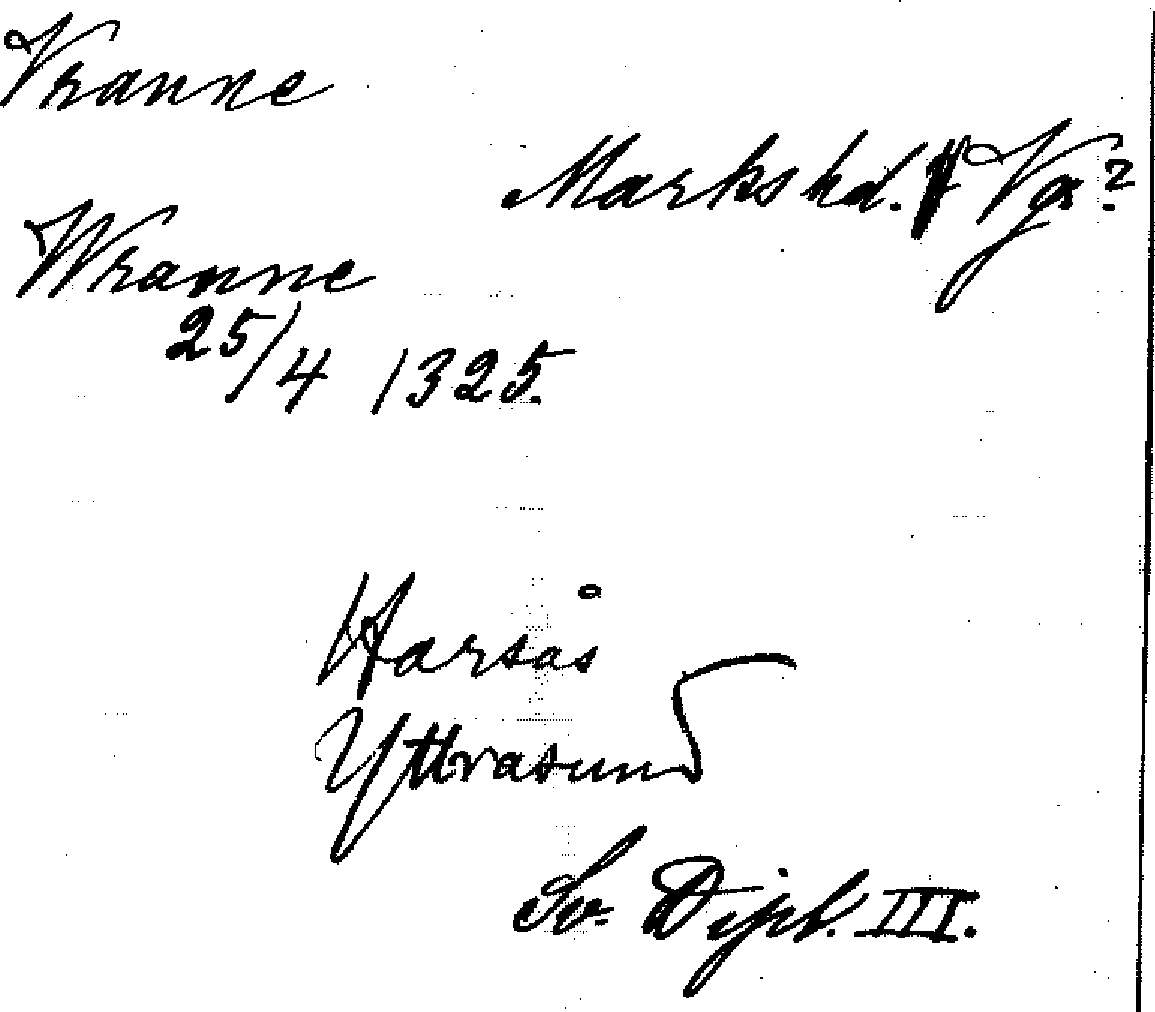 Vranne
Markshd. Vg.?
Wranne
25/4 1325.
Harsås
Yttrasund
Sv. Dipl. III.